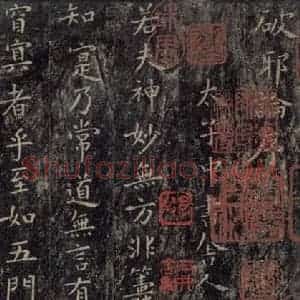 破邪論序
太子中書舍人
若夫神妙無方非籌
知寔乃常道無言有
窅冥者乎至如五門